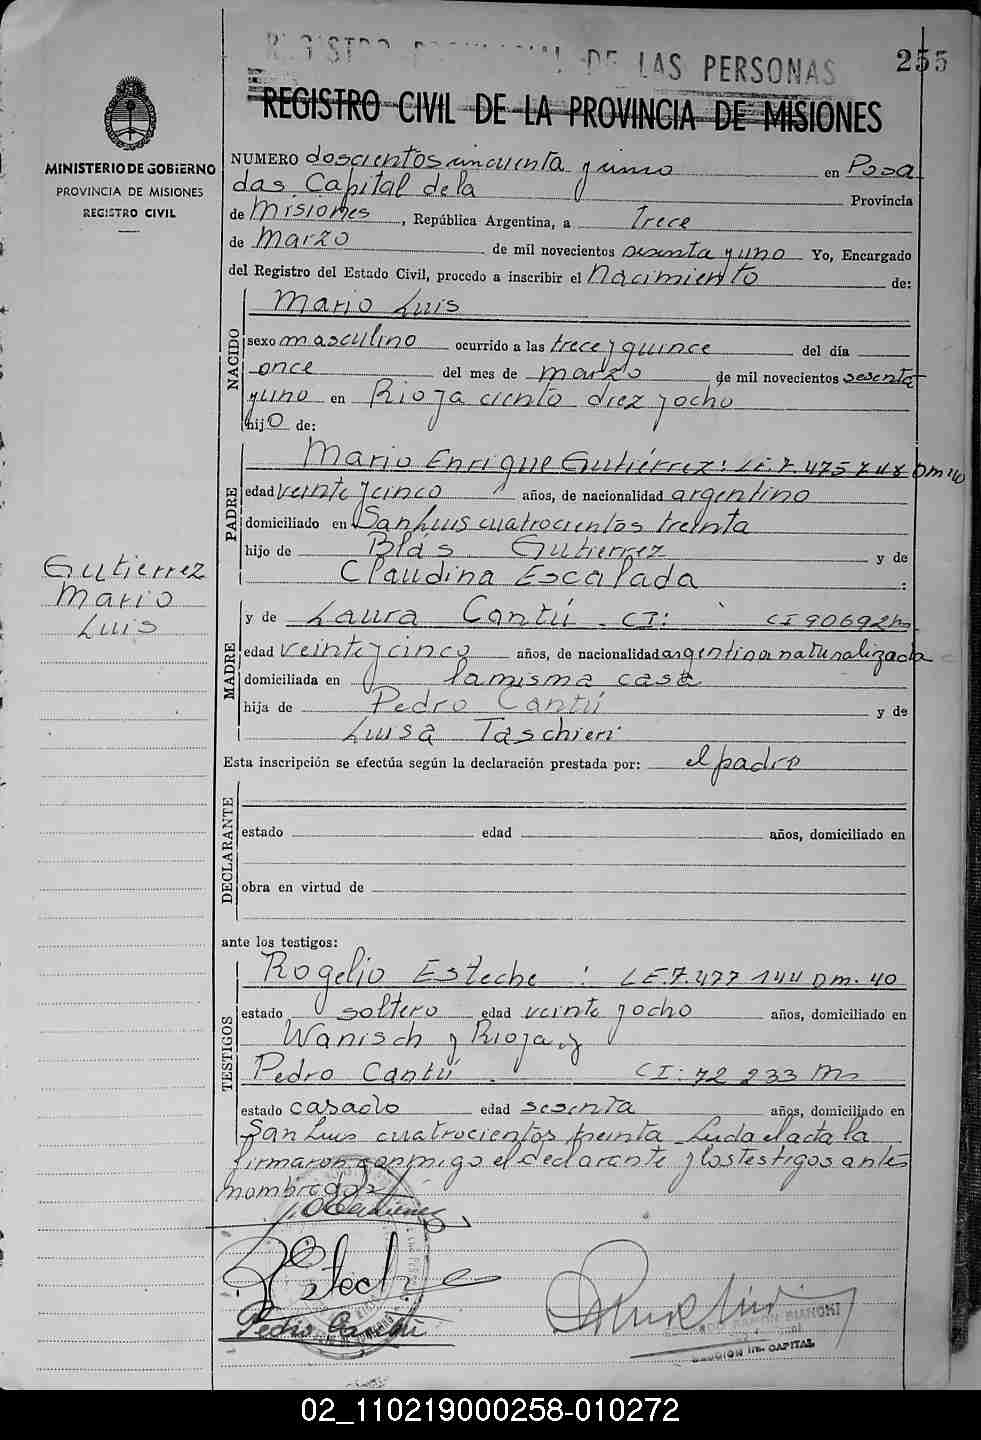 REGISTRO PROVINCIAL DE LAS PERSONAS
255
REGISTRO CIVIL DE LA PROVINCIA DE MISIONES
MINISTERIO DE GOBIERNO
PROVINCIA DE MISIONES
REGISTRO CIVIL
NUMERO doscientos cincuenta y uno en Posa
das Capital de la Provincia
de Misiones, República Argentina, a trece
de Marzo de mil novecientos sesenta y uno Yo, Encargado
del Registro del Estado Civil, procedo a inscribir el Nacimiento de:
NACIDO
Mario Luis
sexo masculino ocurrido a las trece y quince del día
once del mes de marzo de mil novecientos sesenta
y uno en Rioja ciento diez y ocho
hijo de:
PADRE
Mario Enrique Gutiérrez: LE.7.475.748 Dm 40
edad veinte y cinco años, de nacionalidad argentino
domiciliado en San Luis cuatrocientos treinta
hijo de Blás Gutierrez y de
Claudina Escalada :
Gutierrez
Mario
Luis
MADRE
y de Laura Cantú - CI: CI 90692 Ms
edad veinte y cinco años, de nacionalidad argentina naturalizada
domiciliada en la misma casa
hija de Pedro Cantú y de
Luisa Taschieri
Esta inscripción se efectúa según la declaración prestada por: el padre
DECLARANTE
estado edad años, domiciliado en
obra en virtud de
ante los testigos:
TESTIGOS
Rogelio Esteche : LE.7.477 144 Dm. 40
estado soltero edad veinte y ocho años, domiciliado en
Wanisch y Rioja y
Pedro Cantú . CI: 72 233 Ms
estado casado edad sesenta años, domiciliado en
San Luis cuatrocientos treinta Leida el acta la
firmaron conmigo el declarante y los testigos antes
nombrados
Esteche
Pedro Cantú
RAMON BIANCHI
SECCION 1ra. CAPITAL
02_110219000258-010272